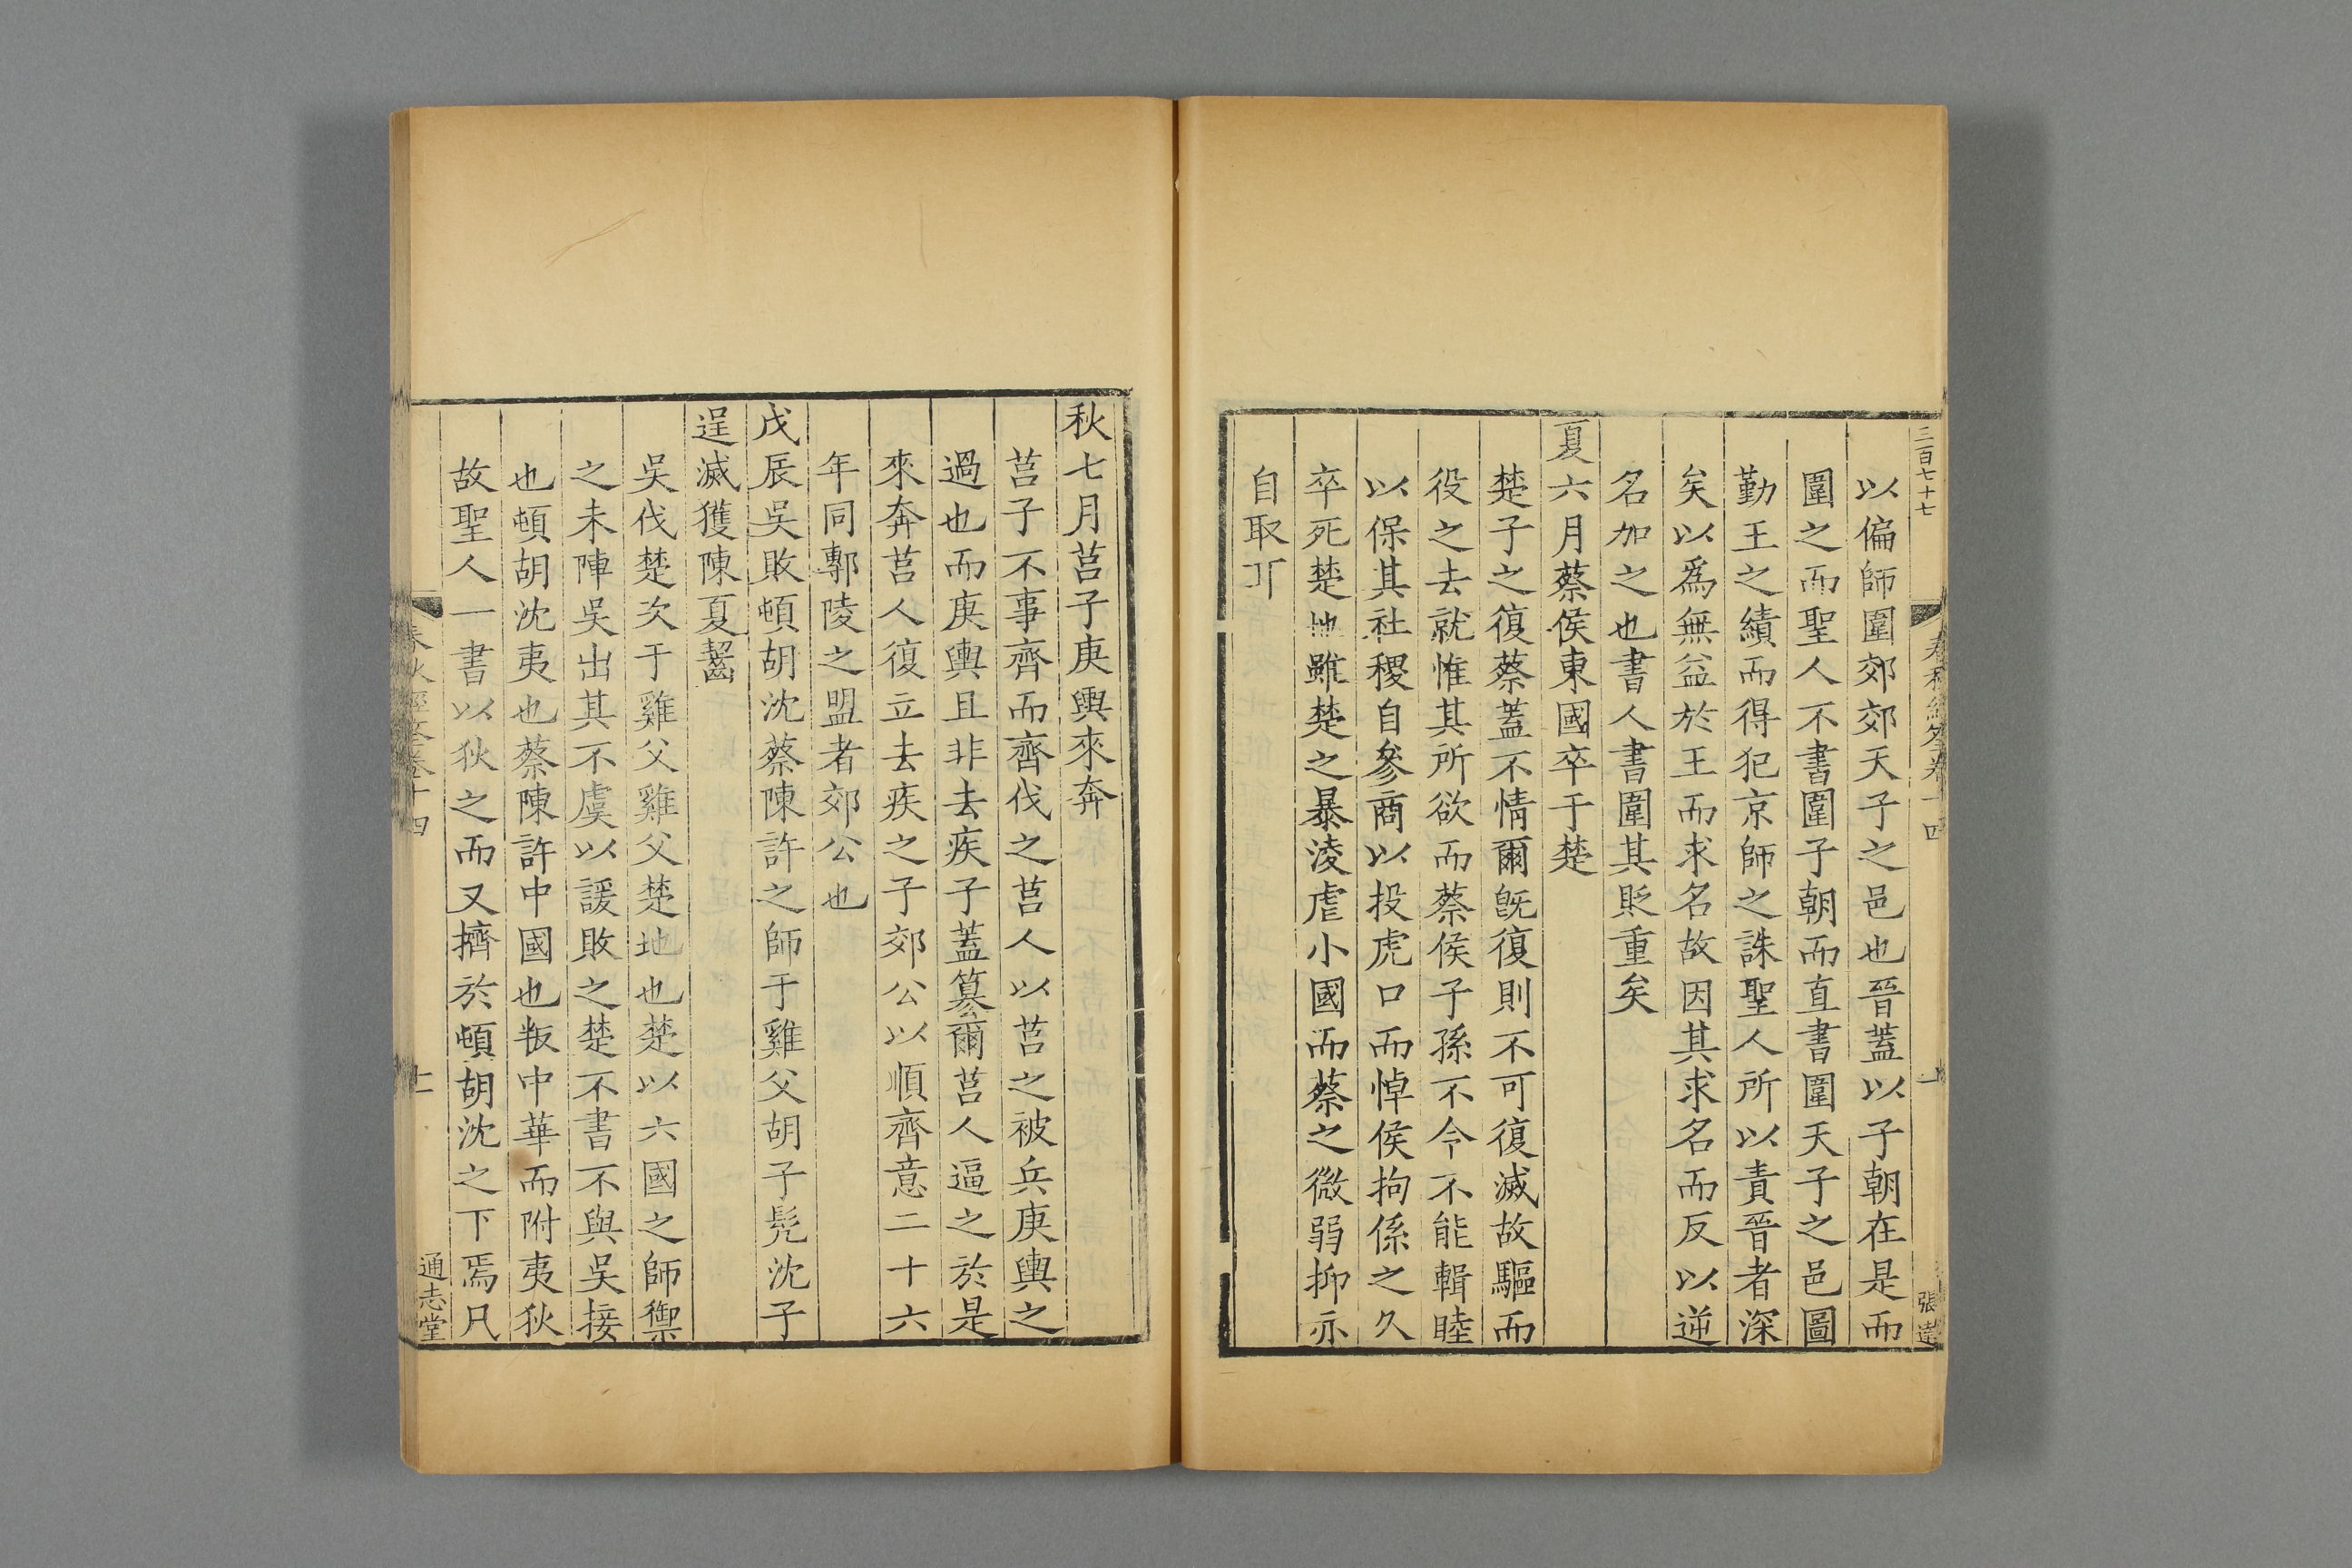 三百七十七
春秋經筌卷十四
張
以偏師圍郊郊天子之邑也晉蓋以子朝在是而
圍之而聖人不書圍子朝而直書圍天子之邑圖
勤王之績而得犯京師之誅聖人所以責晉者深
矣以爲無益於王而求名故因其求名而反以逆
名加之也書人書圍其貶重矣
夏六月蔡侯東國卒于楚
楚子之復蔡蓋不情爾旣復則不可復滅故驅而
役之去就惟其所欲而蔡侯子孫不令不能輯睦
以保其社稷自參商以投虎口而悼侯拘係之久
卒死楚地雖楚之暴淩虐小國而蔡之微弱抑亦
自取
秋七月莒子庚輿來奔
莒子不事齊而齊伐之莒人以莒之被兵庚輿之
過也而庚輿且非去疾子蓋簒爾莒人逼之於是
來奔莒人復立去疾之子郊公以順齊意二十六
年同鄟陵之盟者郊公也
戊辰吳敗頓胡沈蔡陳許之師于雞父胡子髠沈子
逞滅獲陳夏齧
吳伐楚次于雞父雞父楚地也楚以六國之師禦
之未陣吳出其不虞以諼敗之楚不書不與吳接
也頓胡沈夷也蔡陳許中國也叛中華而附夷狄
故聖人一書以狄之而又擠於頓胡沈之下焉凡
春秋經筌卷十四
上
通志堂